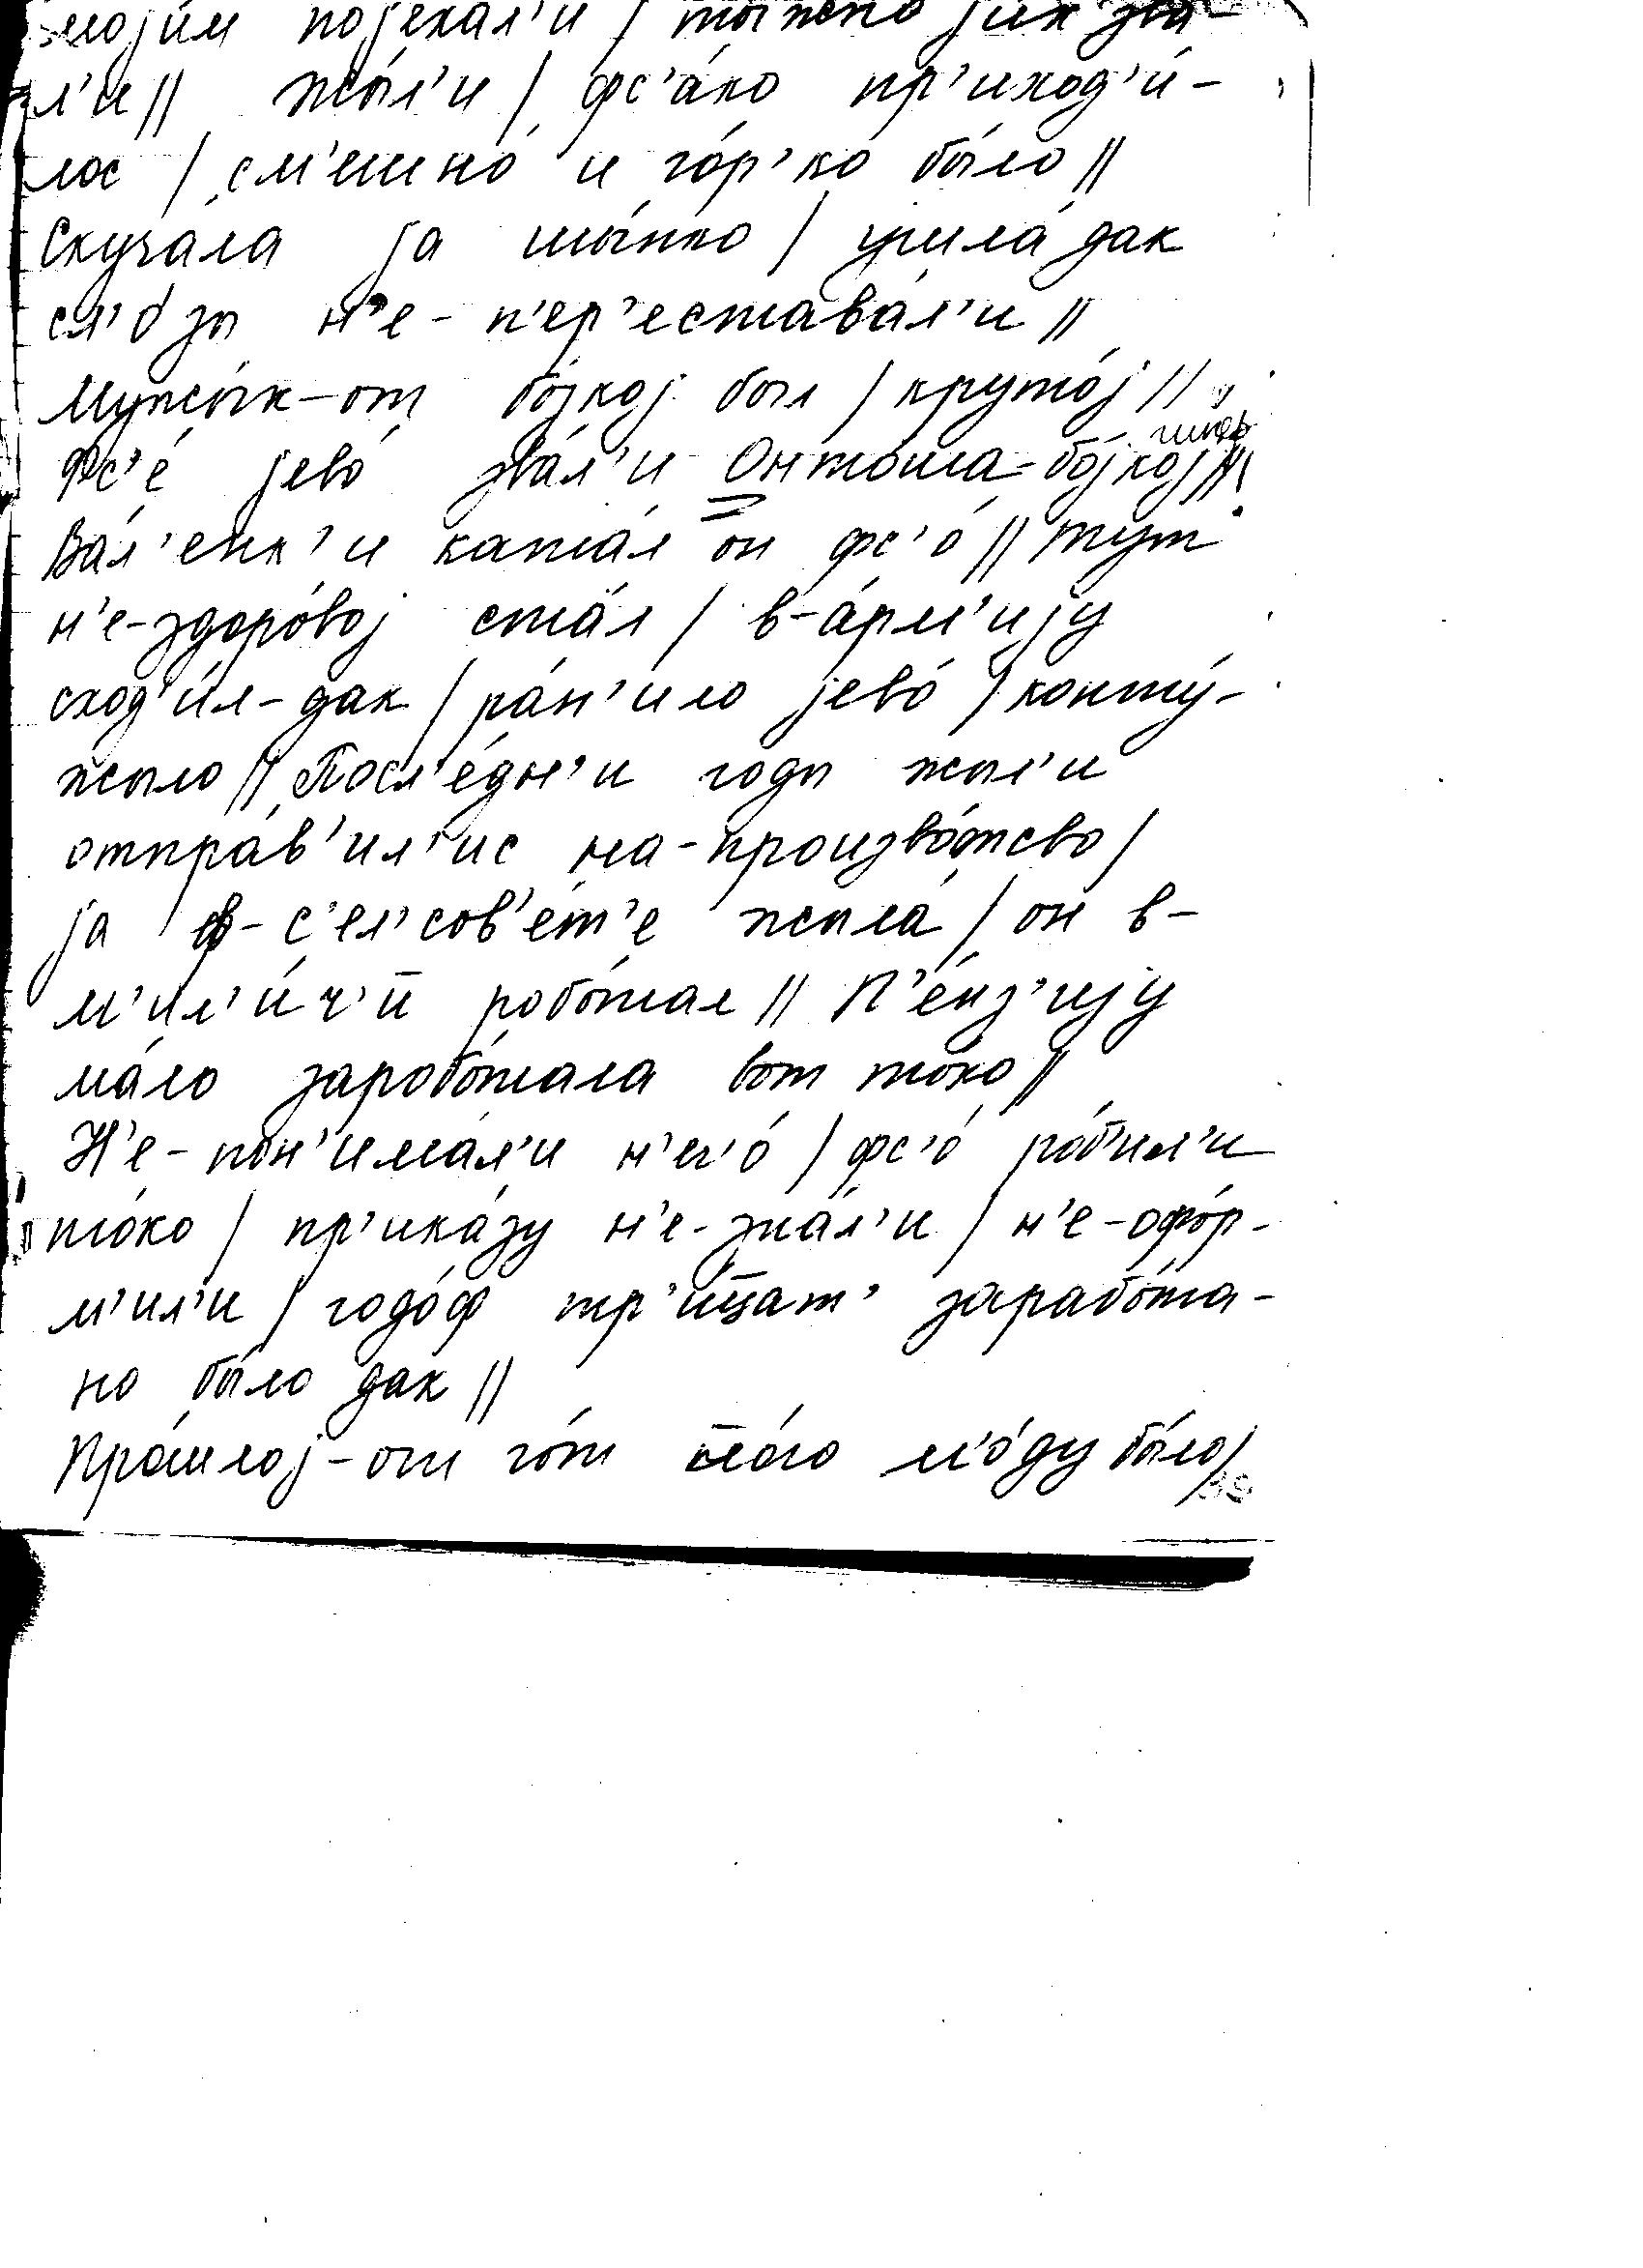 мојим појехал'и / тыжно јих зва-
л'и // жы́л'и / фс'а́ко пр'иход'и́-
лос / см'ешно́ и го́р'ко бы́ло //
Скуча́ла ја шы́пко / ушла́ дак
сл'о́зы н'е-п'ер'естава́л'и //
Мужы́к-от бо́јкој был / круто́ј //
Фс'е́ јево́ зва́л'и Онто́ша-бо́јкој //
Ва́л'енк'и ката́л он фс'о́ // тут
н'е-здоро́вој ста́л / в-а́рм'ију
сход'и́л-дак / ра́н'ило јево́ / конту́-
жыло // Посл'е́дн'и годы жыл'и
отпра́в'ил'ис на-произво́тсво /
ја в-с'ел'сов'е́т'е жыла́ / он в-
м'ил'и́ч'и робо́тал // П'е́нз'ију
ма́ло заробо́тала вот то́ко //
Н'е-пон'има́л'и н'ич'о́ / фс'о́ ро́б'ил'и
то́ко / пр'ика́зу н'е-зна́л'и / н'е-офо́р-
м'ил'и / годо́ф тр'и́цат' зарабо́та-
но бы́ло дак //
Про́шлој-от го́т мно́го м'о́ду бы́ло /